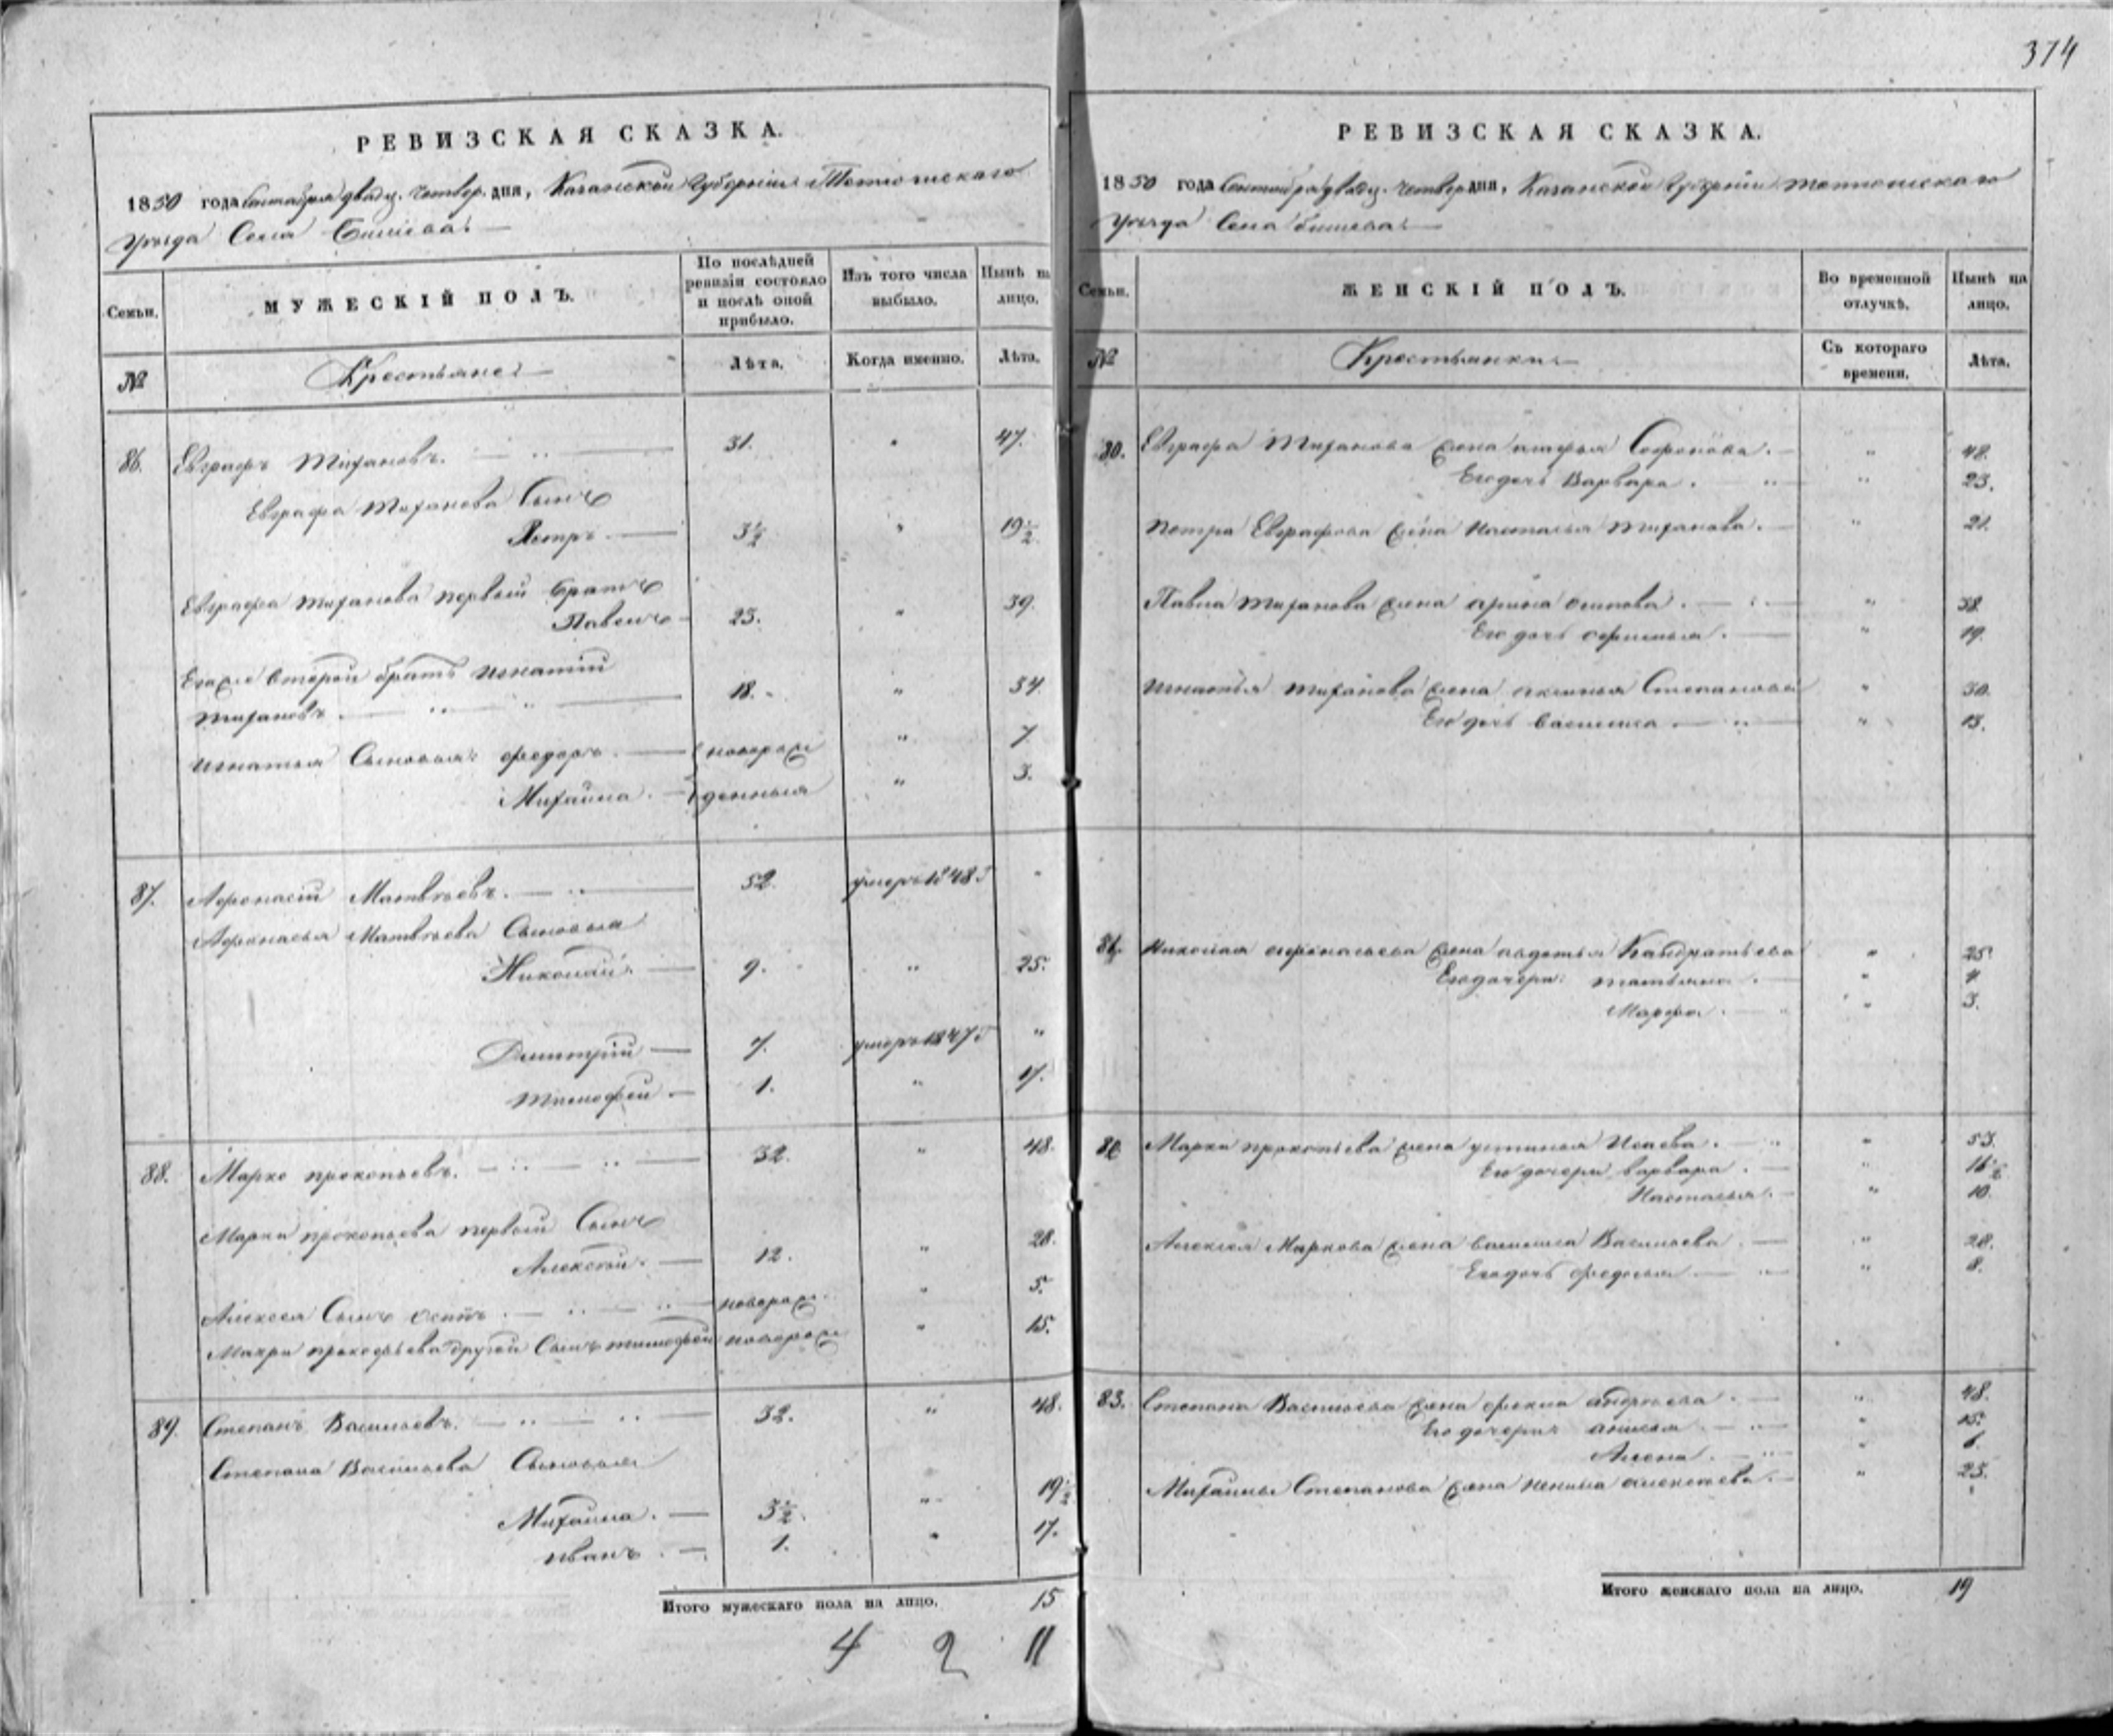 374
РЕВИЗСКАЯ СКАЗКА.
1850 года Сентября двадц. четвер. дня, Казанской Губернии Тетюшскаго
уезда Села
Семьи.
МУЖЕСКІЙ ПОЛЪ.
По послѣдней ревизіи состояло и послѣ оной прибыло.
Изъ того числа выбыло.
Нынѣ на лицо.
№
Крестьяне
Лѣта.
Когда именно.
Лѣта.
86. Евграфъ Тихановъ. 31. " 47.
Евграфа Тиханова Сынъ
Петръ. 3½ " 19½
Евграфа Тиханова первый братъ
Павелъ 23. " 39.
Его же второй братъ Игнатий
Тихановъ. 18. " 34.
Игнатья Сыновья: Федоръ. новорож " 7.
Михайла. денныя " 3.
87. Афонасій Матвѣевъ. 52. умеръ 1848 "
Афонасья Матвѣева Сыновья
Николай. 9. " 25.
Дмитрій 7. умеръ 1847 "
Тимофей. 1. " 17.
88. Марко прокопьевъ. 32. " 48.
Марки прокопьева первый Сынъ
Алексѣй. 12. " 28.
Алексея Сынъ Осипъ. новорож. " 5.
Макри прокофьева другой Сынъ тимофей новорож " 15.
89. Степанъ Васильевъ. 32. " 48.
Степана Васильева Сыновья
Михайла. 3½. " 19½
иванъ. 1. " 17.
Итого мужескаго пола на лицо. 15
4 2 11
РЕВИЗСКАЯ СКАЗКА.
1850 года Сентября двадц. четвер дня, Казанской Губернии Тетюшскаго
уезда Села
Семьи.
ЖЕНСКІЙ ПОЛЪ.
Во временной отлучкѣ.
Нынѣ на лицо.
№
Крестьянки
Съ котораго времени.
Лѣта.
Евграфа Тиханова жена Софонова. " 48.
Его дочь Варвара. " 23.
Петра Евграфова жена Настасья Тиханова. " 21.
Павла Тиханова жена арина осипова. " 38.
Его дочь офимья. " 19.
Игнатья Тиханова жена Степанова " 30.
Его дочь василиса " 13.
Николая афонасьева жена авдотья Кандратьева " 25.
Его дочери: татьяна. " 4
Марфа. " 3.
Марки прокопьева жена устинья Исаева. " 53.
Его дочери варвара. " 16½
Настасья. " 10.
Алексея Маркова жена василиса Васильева. " 28.
Его дочь федосья " 8.
83. Степана Васильева жена фекла андреева. " 48.
Его дочери анисья. " 15.
Алена. " 6.
Михайлы Степанова жена ненила алексеева. " 23.
Итого женскаго пола на лицо. 19